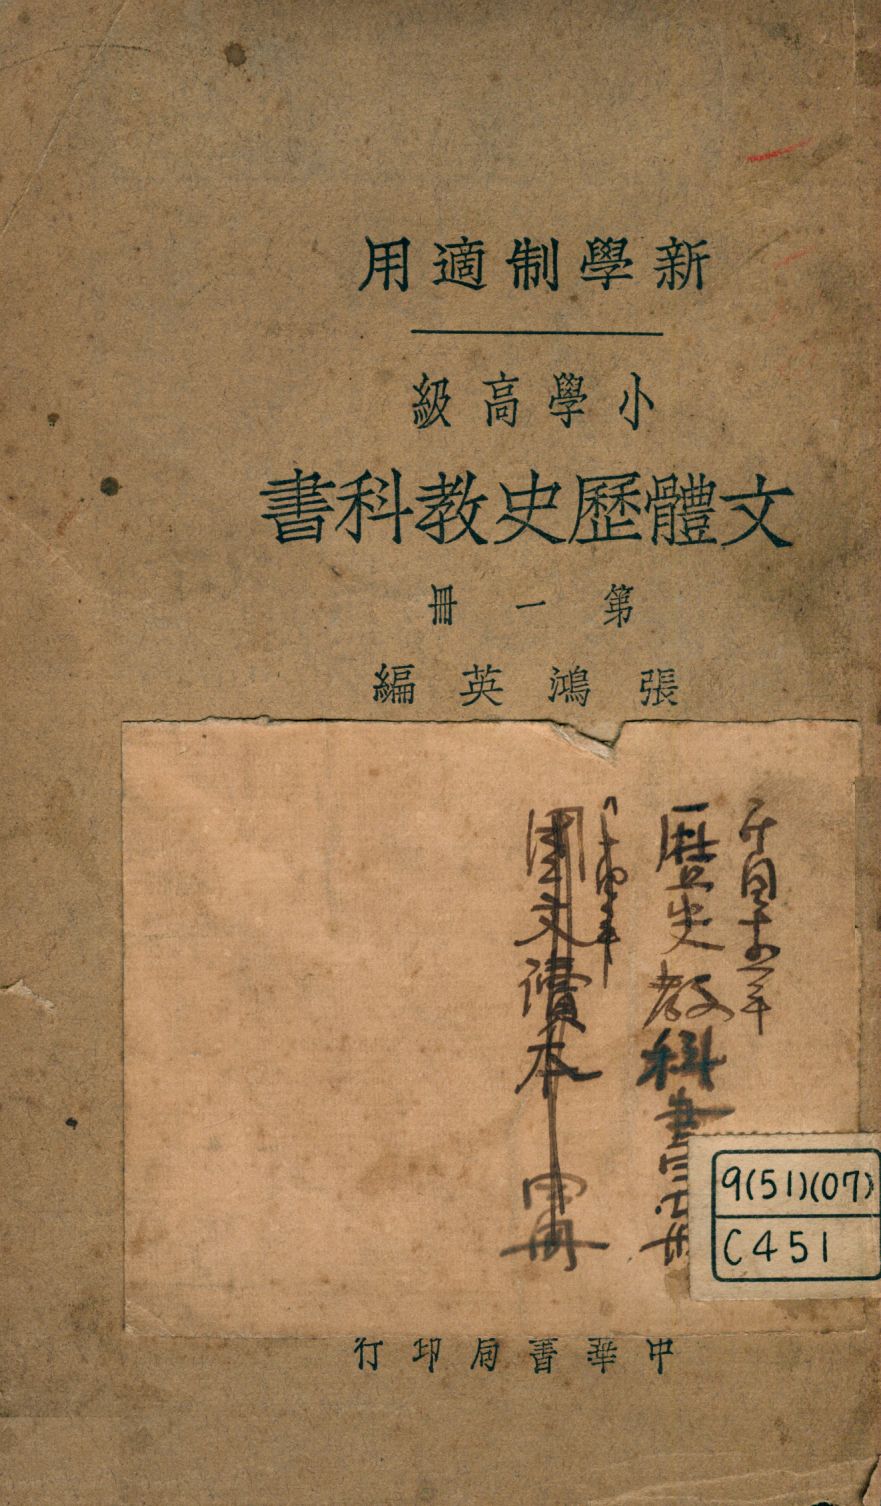 新學制適用
小學高級
文體歷史教科書
第一冊
張鴻英編
歷史教科書
國文讀本
9(51)(07)
C451
中華書局印行